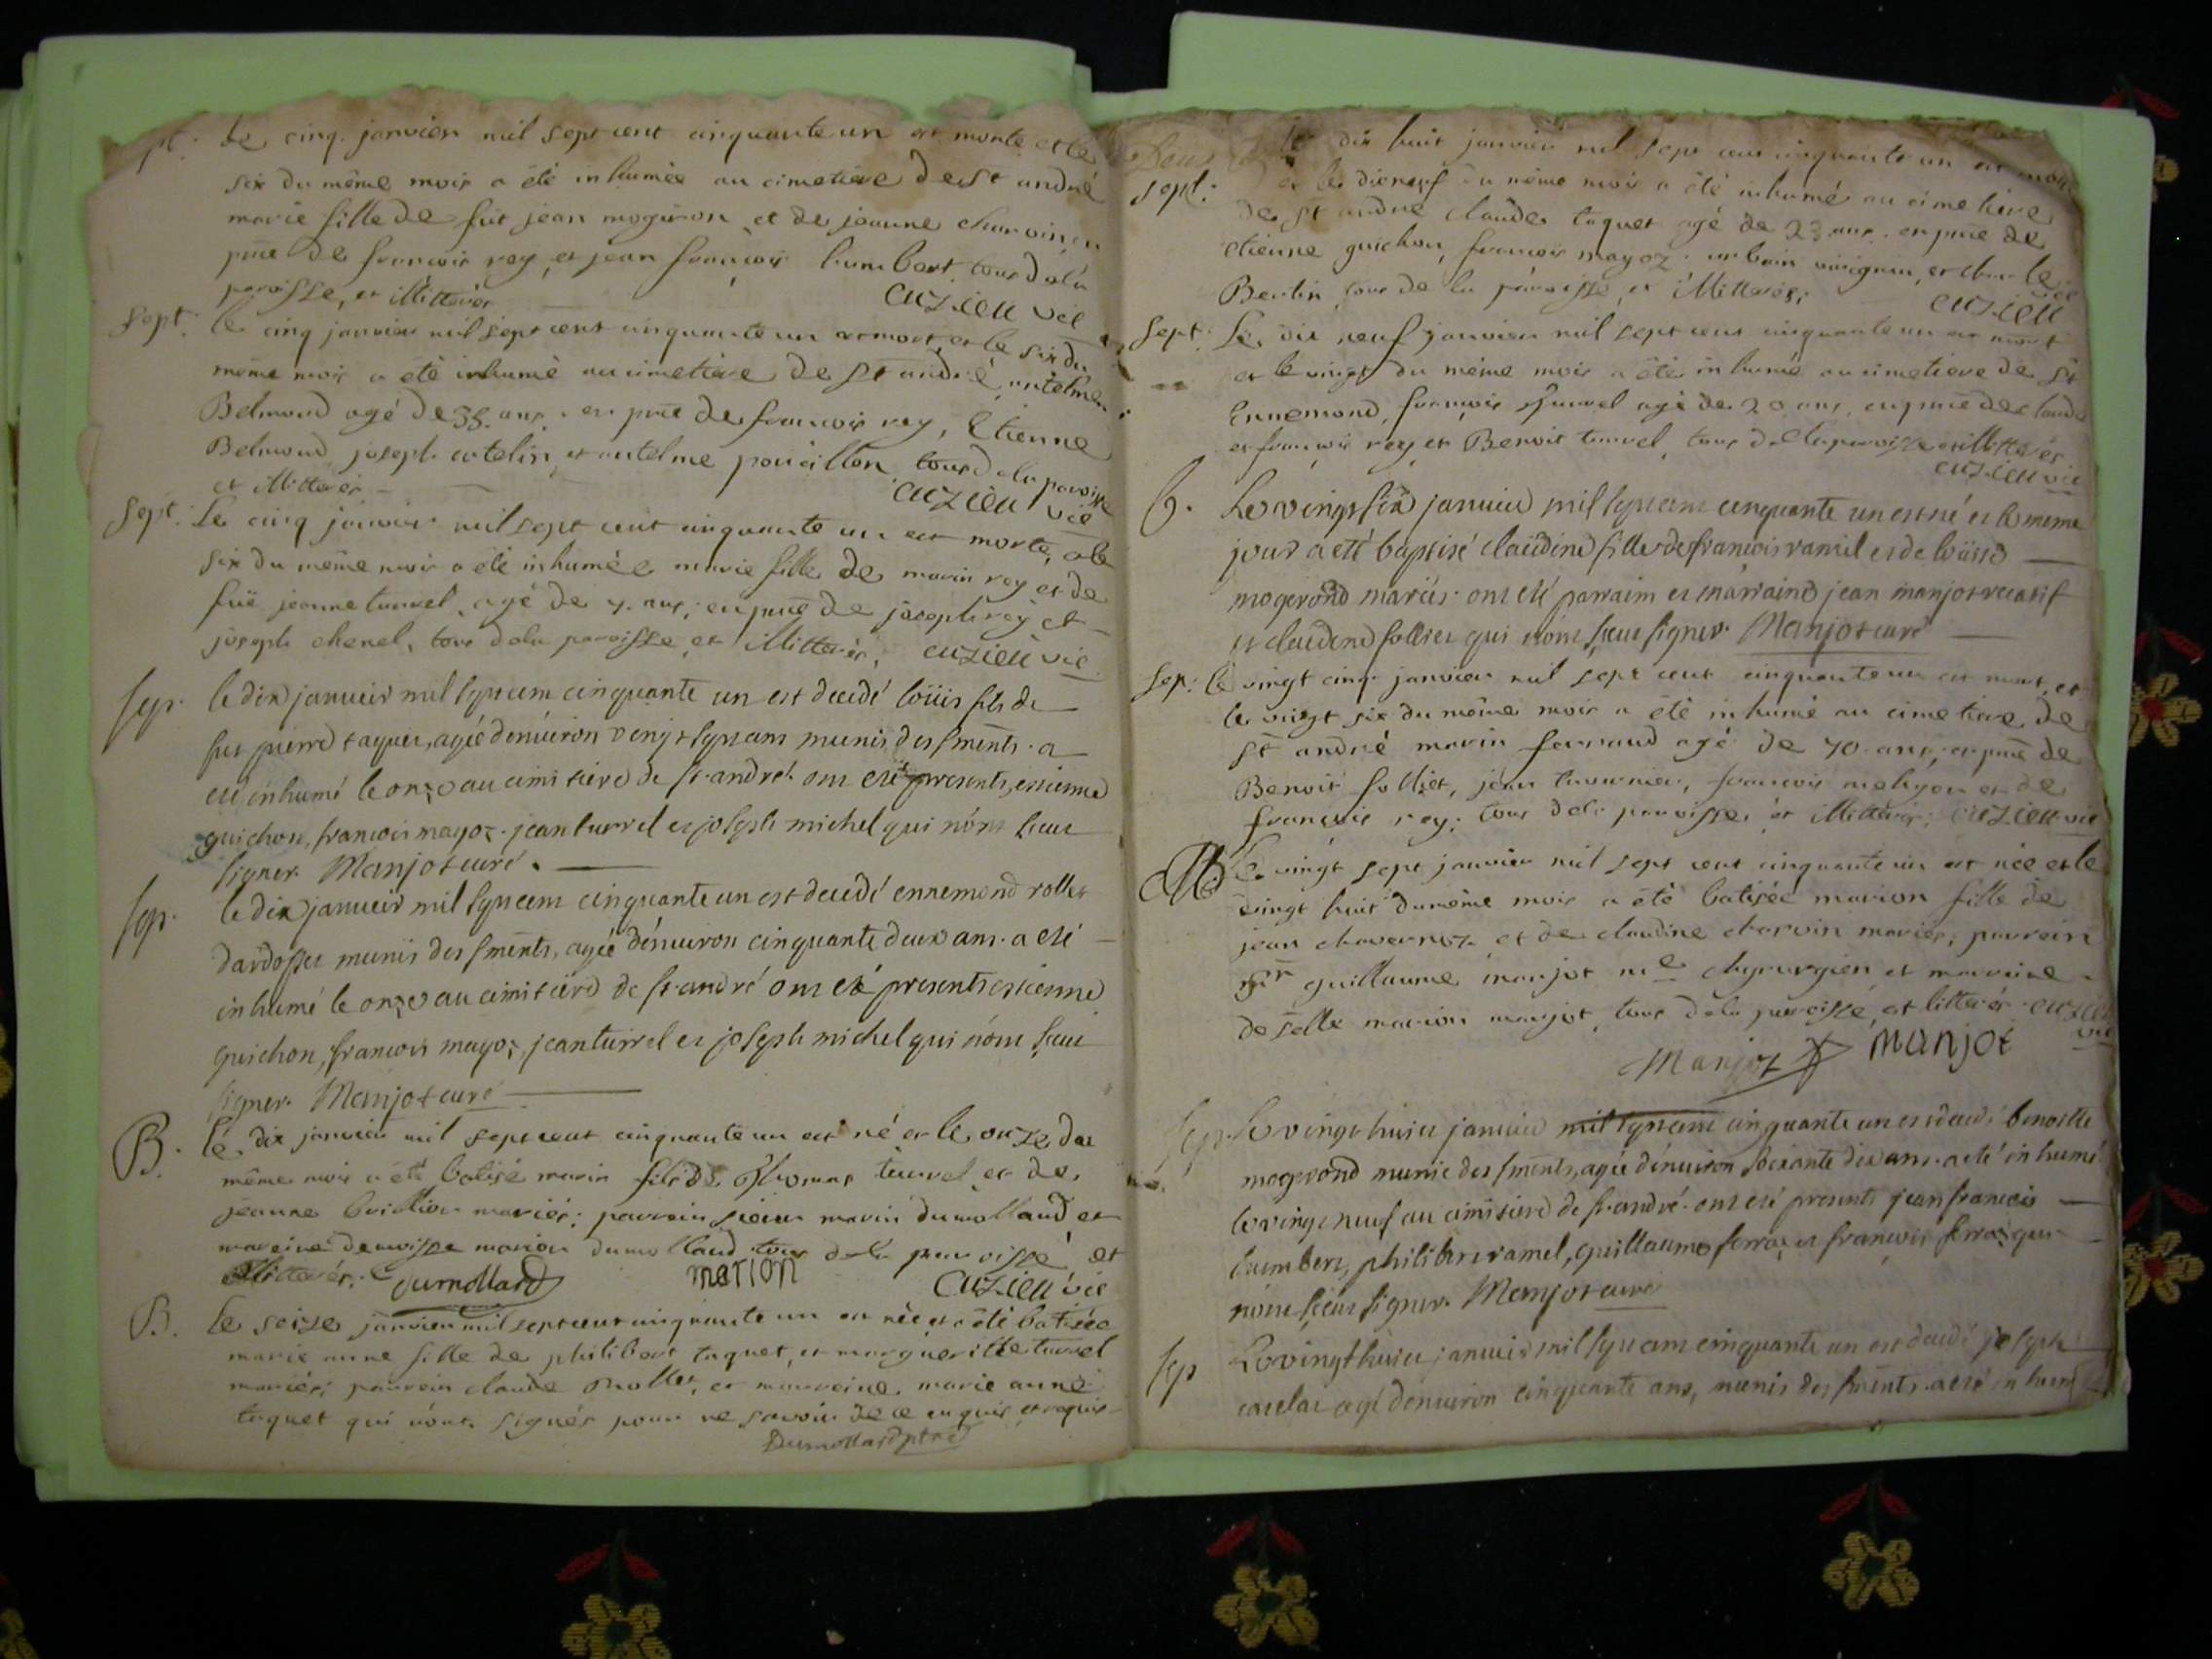 pt. Le cinq. janvier mil sept cent cinquante un est morte et le
six du même mois a été inhumée au cimetiere de st andré
marie fille de fût jean mogiron et de jeanne charvin, en
pnce de francois rey, et jean françois humbert tous de la
paroisse, et illitterés
cuzieu vic
Sept. le cinq janvier mil sept cent cinquante un est mort, et le six du
même mois a été inhumé au cimetiere de st andré antelme
Belmond agé de 35. ans. en pnce de francois rey, Etienne
Belmond joseph catelin et antelme povillon tous de la paroisse
et illitterés
cuzieu vic
Sept. Le cinq janvier mil sept cent cinquante un est morte, et le
six du même mois a été inhumée marie fille de marin rey et de
fuë jeanne turrel, agé de 4. ans; en pnce de joseph rey et
joseph chenel, tous de la paroisse et illitterés. cuzieu vic
sep. le dix janvier mil sept cent cinquante un est decedé loüis fils de
fut pierre taquet, agée d'environ vingt sept ans munis des sments. a
eté inhumé le onze au cimitiere de st. andré. ont eté presents, estienne
guichon, francois mayoz. jean turrel et joseph michel qui n'ont sceu
signer. Manjot curé.
sep. le dix janvier mil sept cent cinquante un est decedé ennemond rollet
dardosset munis des sments, agée d'environ cinquante deux ans. a eté
inhumé le onze au cimitiere de st. andré ont eté presents estienne
guichon, francois mayoz, jean turrel et joseph michel qui n'ont sceu
signer. Manjot curé
B. le. dix janvier mil sept cent cinquante un est né et le onze du
même mois a été batisé marin fils de thomas turrel et de
jeanne bricllion mariés; parrein sieur marin dumolland et
mareine demoisse marion dumolland tous de la paroisse et
illitterés. Dumollard marion cuzieu vic
B. Le seize janvier mil sept cent cinquante un est née et a été batisée
marie anne fille de philibert taquet, et margueritte turrel
mariés; parrein claude mollet, et marreine. marie anne
taquet qui n'ont. signés pour ne savoir de ce enquis et requis
Dumollard ptre
le dix huit janvier mil sept cent cinquante un est mort
sept. et le dixneuf du même mois a été inhumé au cimetiere
de st andré claude taquet agé de 23 ans. en pnce de
etienne guichon, francois mayoz. urbain
Bertin tous de la paroisse et illitterés;
cuzieu vic
Sept. Le dix neuf janvier mil sept cent cinquante un est mort
et le vingt du même mois a été inhumé au cimetiere de st
Ennemond françois turrel agé de 20 ans, en pnce de claude
et françois rey et Benoit turrel, tous de la paroisse et illitterés
cuzieu vic
b. Le vingt six janvier mil sept cent cinquante un est né et le meme
jour a eté baptisé claüdine fille de francois ramel et de loüise
mogerond mariés. ont eté parraim et marraine jean manjot
et claudine folliet qui n'ont sceu signer. Manjot curé
Sep: le vingt cinq. janvier mil sept cent cinquante un est mort, et
le vingt six du même mois a été inhumé au cimetiere de
st andré marin ferraud agé de 70 ans; en pnce de
Benoit folliet, jean tavernier, francois et de
françois rey; tous de la paroisse, et illitterés; cuzieu vic
B Le vingt sept janvier mil sept cent cinquante un est née et le
vingt huit du même mois a été batisée marion fille de
jean chavernoz et de claudine charvin mariés; parrein
sr guillaume manjot me chyrurgien et mareine
deselle marion manjot, tous de la paroisse, et litterés. cuzieu
vic
Manjot Manjot
Sep. Le vingt huict janvier mil sept cent cinquante un est decedé benoitte
mogerond munie des sments, agée d'environ soixante dix ans. a eté inhumé
le vingt neuf au cimitiere de st. andré. ont eté presents jean francois
humbert, philibert ramel, guillaume ferraz et francois ferraz qui
n'ont sceu signer. Manjot curé
sep Le vingt huict janvier mil sept cent cinquante un est decedé joseph
catelar agé d'environ cinquante ans, munis des sments. a eté inhumé